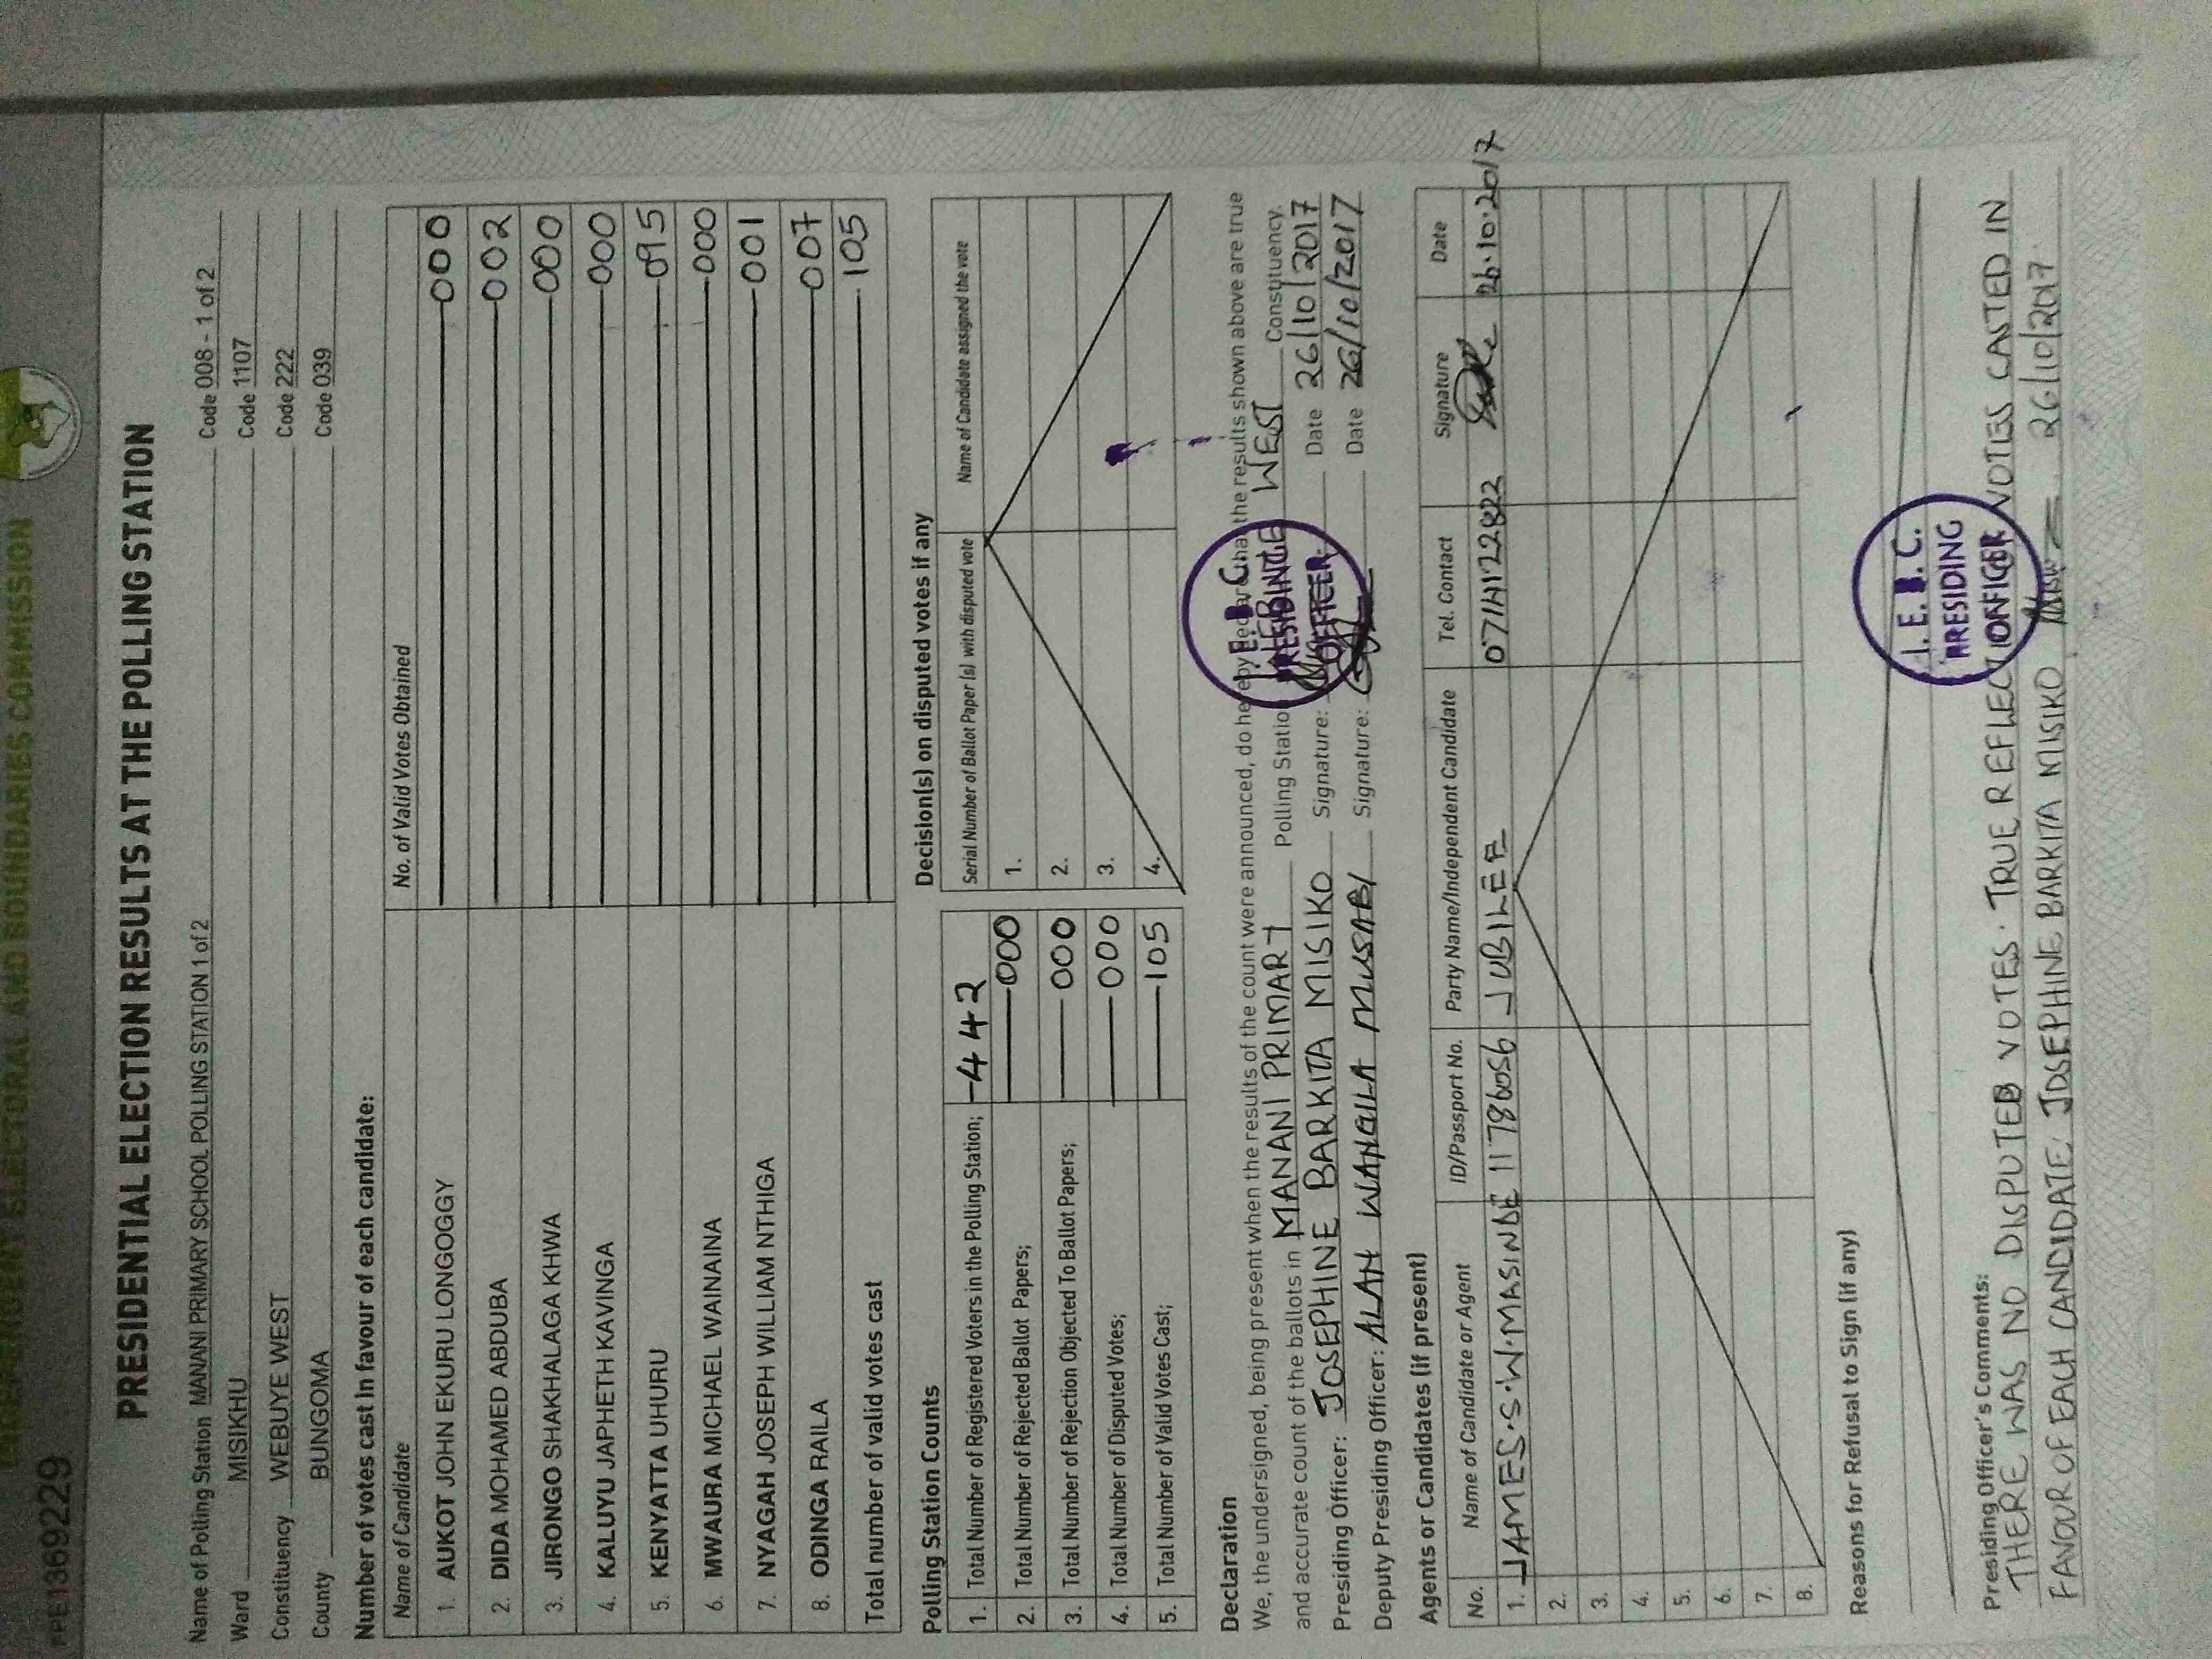 INDEPENDENT ELECTORAL AND BOUNDARIES COMMISSION
PE1369229
PRESIDENTIAL ELECTION RESULTS AT THE POLLING STATION
Name of Polling Station MANANI PRIMARY SCHOOL POLLING STATION 1 of 2 Code 008 - 1 of 2
Ward MISIKHU Code 1107
Constituency WEBUYE WEST Code 222
County BUNGOMA Code 039
Number of votes cast in favour of each candidate:
Name of Candidate No. of Valid Votes Obtained
1. AUKOT JOHN EKURU LONGOGGY 000
2. DIDA MOHAMED ABDUBA 002
3. JIRONGO SHAKHALAGA KHWA 000
4. KALUYU JAPHETH KAVINGA 000
5. KENYATTA UHURU 095
6. MWAURA MICHAEL WAINAINA 000
7. NYAGAH JOSEPH WILLIAM NTHIGA 001
8. ODINGA RAILA 007
Total number of valid votes cast 105
Polling Station Counts
1. Total Number of Registered Voters in the Polling Station; 442
2. Total Number of Rejected Ballot Papers; 000
3. Total Number of Rejection Objected To Ballot Papers; 000
4. Total Number of Disputed Votes; 000
5. Total Number of Valid Votes Cast; 105
Decision(s) on disputed votes if any
Serial Number of Ballot Paper (s) with disputed vote Name of Candidate assigned the vote
1.
2.
3.
4.
Declaration
We, the undersigned, being present when the results of the count were announced, do hereby declare that the results shown above are true
and accurate count of the ballots in MANANI PRIMARY Polling Station WEBUYE WEST Constituency.
Presiding Officer: JOSEPHINE BARKITA MISIKO Signature: Date 26/10/2017
Deputy Presiding Officer: ALAN WANGILA MUSABI Signature: Date 26/10/2017
I.E.B.C.
PRESIDING
OFFICER
Agents or Candidates (if present)
No. Name of Candidate or Agent ID/Passport No. Party Name/Independent Candidate Tel. Contact Signature Date
1. JAMES.S.W.MASINDE 11786056 JUBILEE 0714122822 26.10.2017
2.
3.
4.
5.
6.
7.
8.
Reasons for Refusal to Sign (if any)
I.E.B.C.
PRESIDING
OFFICER
Presiding Officer's Comments:
THERE WAS NO DISPUTED VOTES. TRUE REFLECTION OF VOTES CASTED IN
FAVOUR OF EACH CANDIDATE. JOSEPHINE BARKITA MISIKO 26/10/2017.